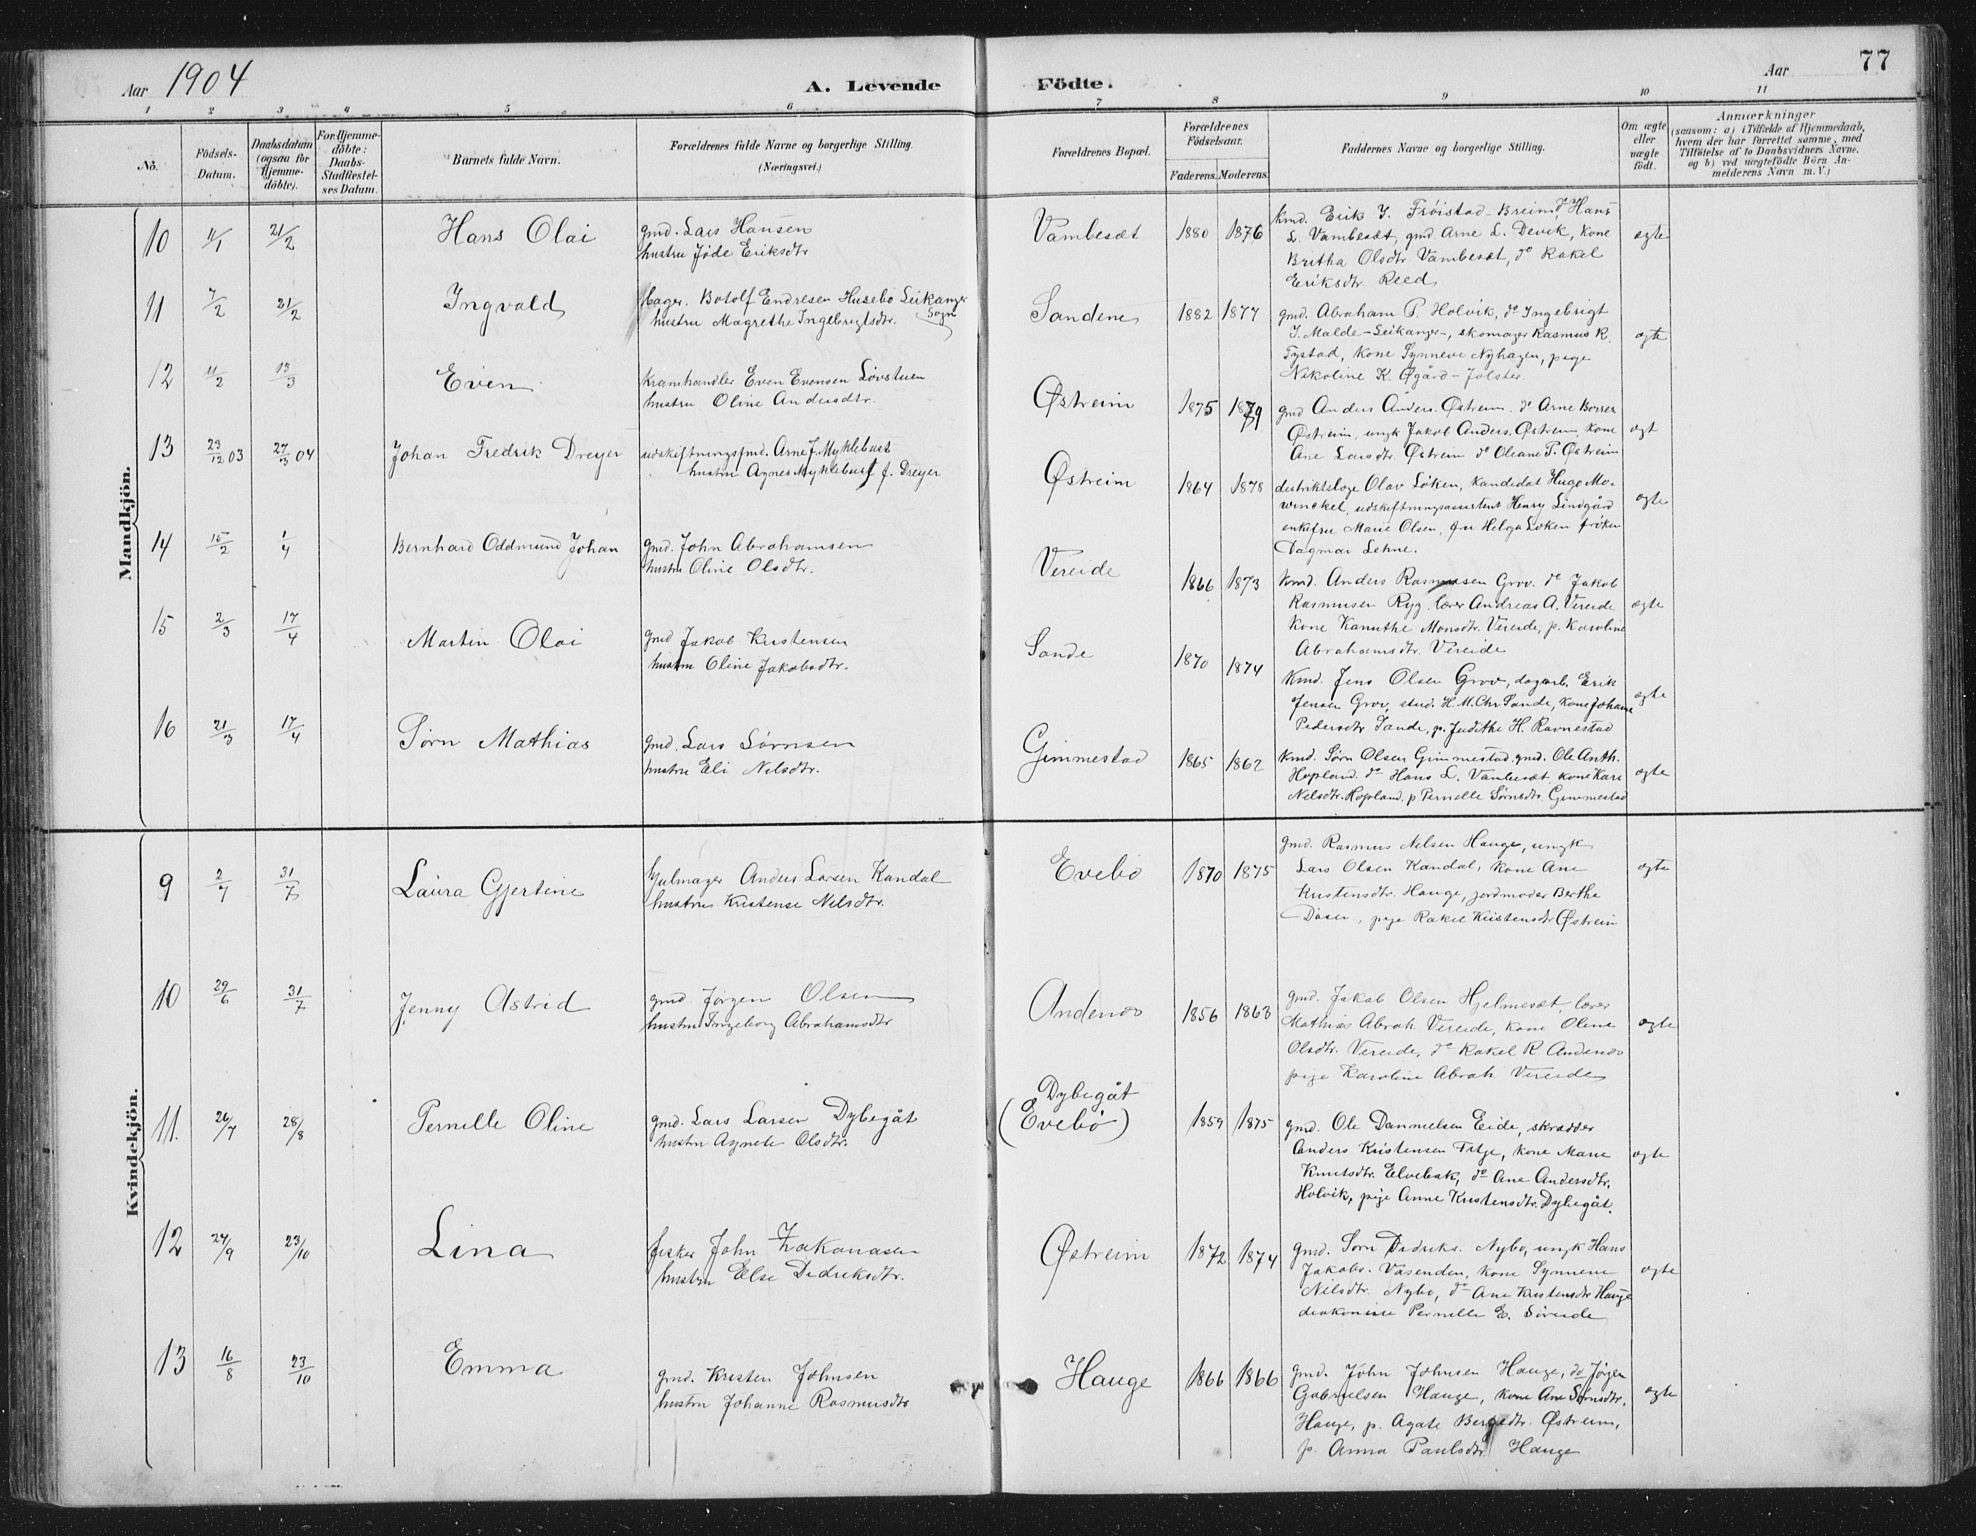 Aar 1904 A. Levende Födte. Aar 77
1 2 3 4 5 6 7 8 9 10 11
No.
Födsels-
Datum.
Daabsdatum
(ogsaa for
Hjemme-
döbte).
For Hjemme-
döbte:
Daabs-
Stadfæstel-
ses Datum.
Barnets fulde Navn.
Forældrenes fulde Navne og borgerlige Stilling.
(Næringsvei.)
Forældrenes Bopæl.
Forældrenes
Födselsaar.
Faderens. Moderens.
Faddernes Navne og borgerlige Stilling.
Om ægte
eller
uægte
födt.
Anmærkninger
(saasom: a) i Tilfælde af Hjemmedaab,
hvem der har forrettet samme, med
Tilföielse af to Daabsvidners Navne,
og b) ved uægtefödte Börn An-
melderens Navn m. V.)
Mandkjön.
10 11/1 21/2 Hans Olai
gmd. Lars Hansen
hustru Jøde Eriksdtr
Vambesæt 1880 1876
kmd. Erik J. Frøistad - Breim, do Hans
L. Vambesæt, gmd Arne L. Devik, kone
Britha Olsdtr Vambesæt, do Rakel
Eriksdtr. Reed
ægte
11 7/2 21/2 Ingvald
bager. Botolf Endresen Husebø Leikanger
Sogn
hustru Magrethe Ingebrigtsdtr.
Sandene 1882 1877
gmd. Abraham P. Holvik, do Ingebrigt
J. Malde - Leikanger -, skomager Rasmus R.
Fystad, kone Synneve Nyhagen, pige
Nikoline K. Øgård - Jølster.
ægte
12 11/2 13/3 Even
Kramhandler Even Evensen Løvstuen
hustru Oline Andersdtr.
Østreim 1875 1879
gmd Anders Anders. Østreim. do Arne
Østreim, ungk Jakob Anders. Østreim, kone
Ane Larsdtr. Østreim do Oleane P. Østreim
ægt
13 23/12 03 27/3 04 Johan Fredrik Dreyer
udskiftningsfmd. Arne J. Myklebust
hustru Agnes Myklebust f. Dreyer
Østreim 1864 1878
distriktslæge Olav Løken, Kandidat Hugo Mo-
winckel, udskiftningsassistent Henry Lindgård
enkefru Marie Olsen, fru Helga Løken frøken
Dagmar Lehne.
ægte
14 15/2 1/4 Bernhard Oddmund Johan
gmd. John Abrahamsen
hustru Oline Olsdtr.
Vereide 1866 1873
kmd. Anders Rasmussen Grov. do Jakob
Rasmusen Ryg, lærer Andreas A. Vereide
kone Kanuthe Monsdtr. Vereide, p. Karoline
Abrahamsdtr. Vereide
ægte
15 2/3 17/4 Martin Olai
gmd Jakob Kristensen
hustru Oline Jakobsdtr.
Sande 1870 1874
Kmd. Jens Olsen Grov, dagarb. Erik
Jensen Grov, stud. H. M. Chr Sande, kone Johane
Pedersdtr Sande, p. Judithe H. Ravnestad
ægte
16 21/3 17/4 Sørn Mathias
gmd. Lars Sørnsen
hustru Eli Nilsdtr.
Gimmestad 1865 1862
kmd. Sørn Olsen Gimmestad. gmd. Ole Anth.
Hopland. do Hans L. Vambesæt kone Kari
Nilsdtr. Hopland. p Pernille Sørnsdtr. Gimmestad
ægte
Kvindekjön.
9 2/7 31/7 Laura Gjertine
hjulmager Anders Larsen Kandal
hustru Kristense Nilsdtr.
Evebø 1870 1875
gmd. Rasmus Nilsen Hauge, ungk
Lars Olsen Kandal, kone Ane
Kristensdtr. Hauge, jordmoder Berthe
pige Rakel Kristensdtr Østreim
ægte
10 29/6 31/7 Jenny Astrid
gmd. Jørgen Olsen
hustru Ingeborg Abrahamsdtr
Andenes 1856 1863
gmd. Jakob Olsen Hjelmesæt, lærer
Mathias Abrah. Vereide, kone Oline
Olsdtr. Vereide, do Rakel R. Andenes
pige Karoline Abrah Vereide
ægte
11. 26/7 28/8 Pernille Oline
gmd. Lars Larsen Dybegåt
hustru Agnete Olsdtr.
Dybegåt
(Evebø) 1859 1875
gmd. Ole Dannielsen Eide, skrædder
Anders Kristensen Fitje, kone Marie
Knutsdtr. Elvebak, do Ane Andersdtr.
Holvik, pige Anne Kristensdtr. Dybegåt.
ægte
12 27/9 23/10 Lina
fisker John Zakariasen
hustru Else Didriksdtr.
Østreim 1872 1874
gmd. Sørn Didriks. Nybø, ungk Hans
Jakobs. Vasenden, kone Synneve
Nilsdtr. Nybø, do Ane Kristensdtr Hauge
diakonisse Pernille E. Søreide
ægte
13 16/8 23/10 Emma
gmd. Kristen Johnsen
hustru Johanne Rasmusdtr
Hauge 1866 1866
gmd. John Johnsen Hauge, do Jørgen
Gabrielsen Hauge, kone Ane Sørnsdtr.
Hauge, p. Agate Østreim,
p. Anna Paulsdtr. Hauge
ægte